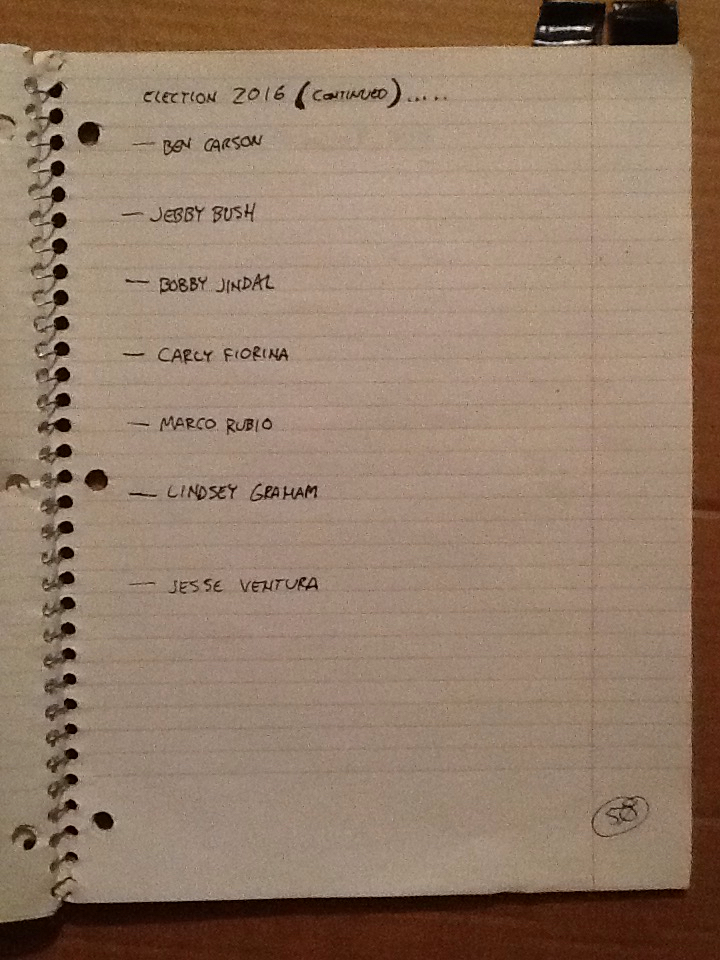 ELECTION 2016 (CONTINUED).....
— BEN CARSON
— JEBBY BUSH
— BOBBY JINDAL
— CARLY FIORINA
— MARCO RUBIO
— LINDSEY GRAHAM
— JESSE VENTURA
58